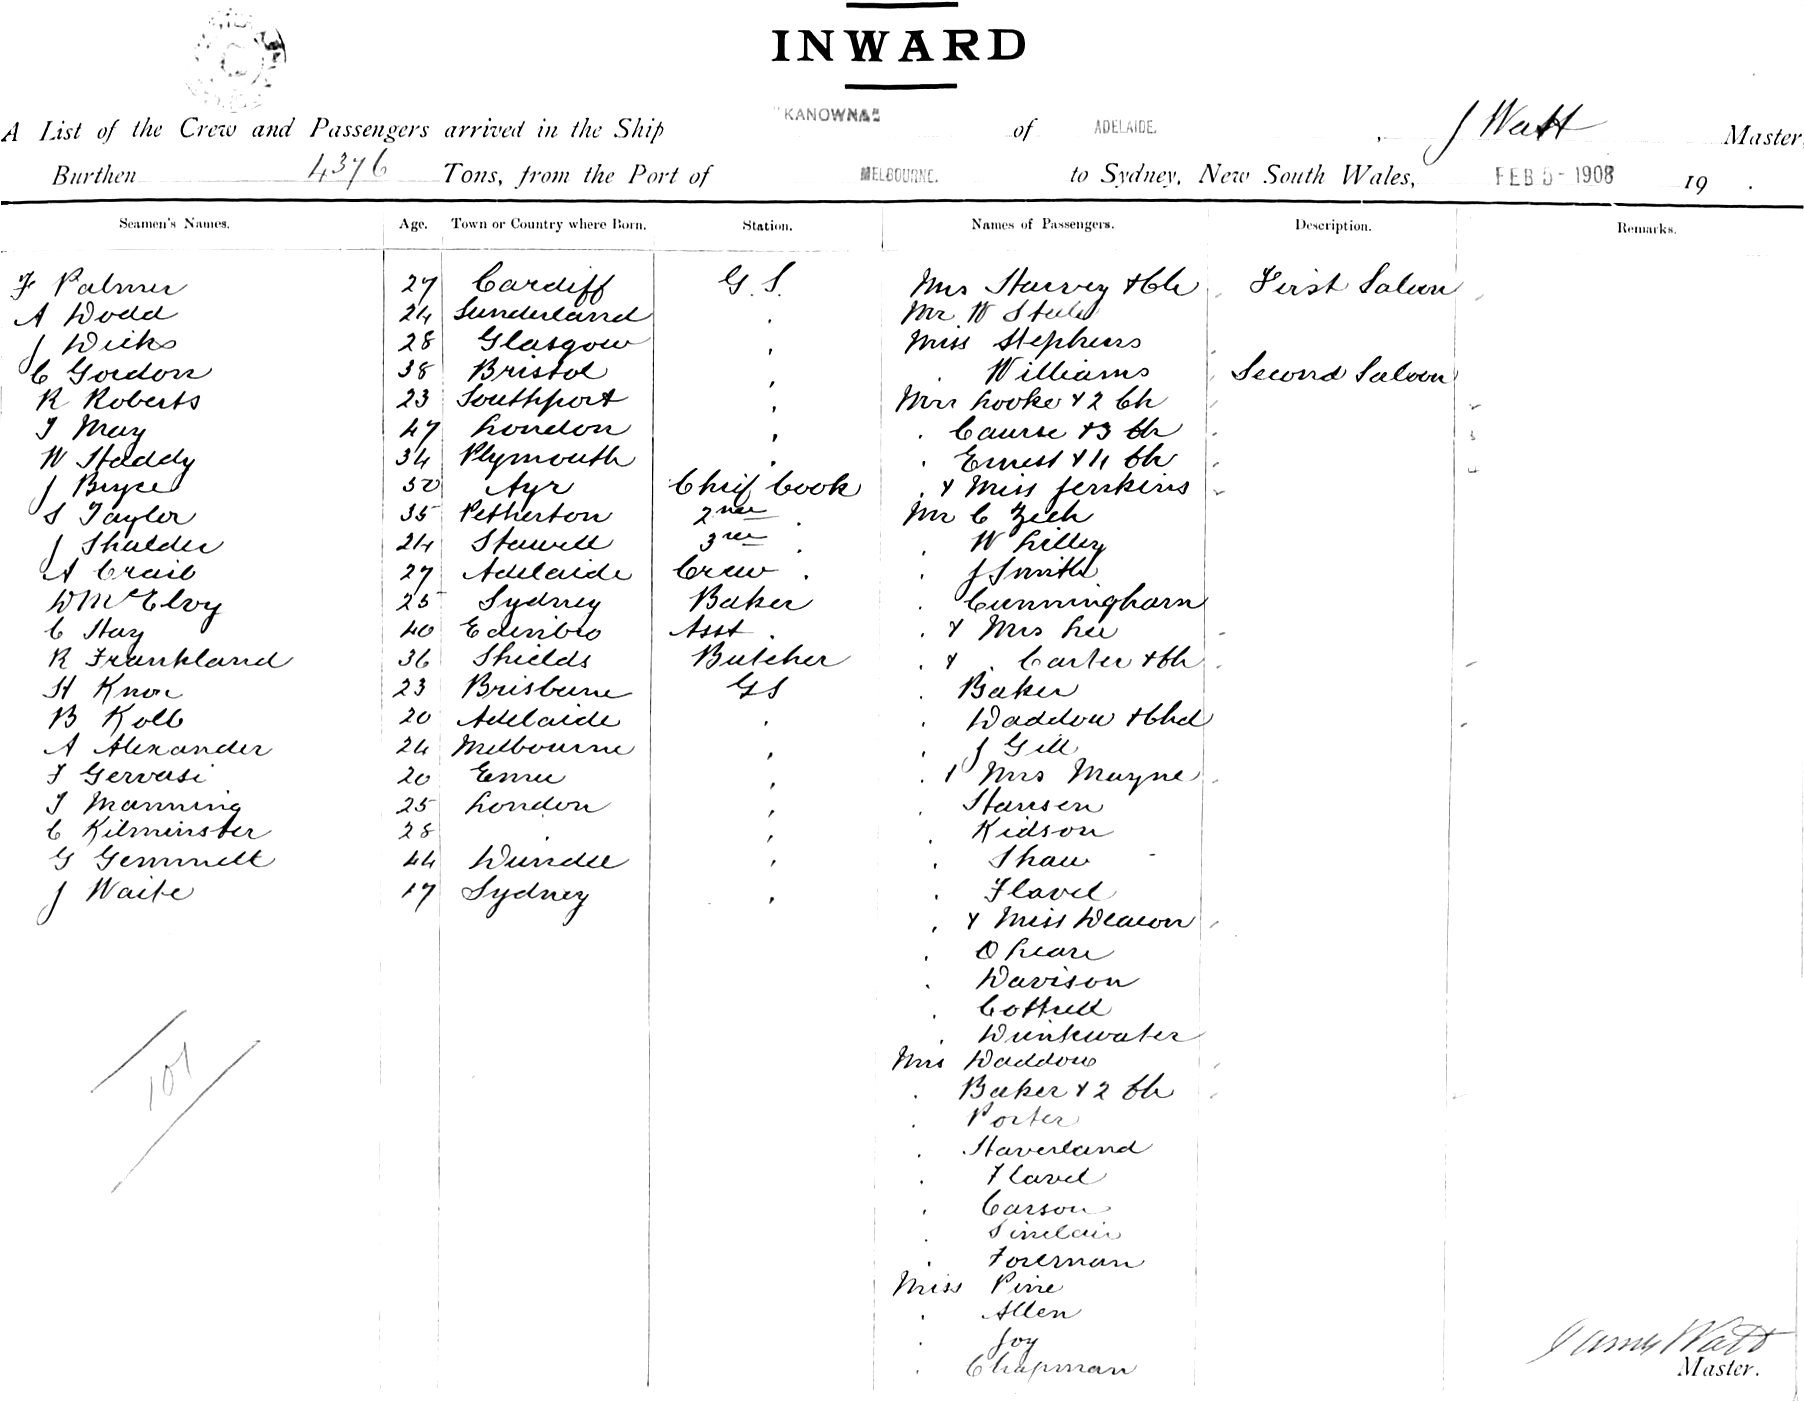 INWARD
A List of the Crew and Passengers arrived in the Ship "KANOWNA" of ADELAIDE. J Watt Master,
Burthen 4376 Tons, from the Port of MELBOURNE. to Sydney, New South Wales, FEB 5- 1908 19 .
Seamen's Names. Age. Town or Country where Born. Station. Names of Passengers. Description. Remarks.
F Palmer 27 Cardiff G.S. Mrs Harvey & Ch First Saloon
A Dodd 24 Sunderland Mr W Steele
J Dicks 28 Glasgow Miss Stephens
C Gordon 38 Bristol Williams Second Saloon
R Roberts 23 Southport Mrs Looke & 2 Ch
T May 47 London Caurse & 3 Ch
W Staddy 34 Plymouth Ernest & 4 Ch
J Bryce 50 Ayr Chief Cook & Miss Jenkins
S Taylor 35 Petherton 2nd Mr C Zech
J Shalder 24 Stawell 3rd W Lilley
A Crail 27 Adelaide Crew J Smith
D McElvoy 25 Sydney Baker Cunningham
C Hay 40 Edinbro Asst. & Mrs Lee
R Frankland 36 Shields Butcher & Carter & Ch
H Knox 23 Brisbane GS Baker
B Kolb 20 Adelaide Waddow & Chd
A Alexander 24 Melbourne J Gill
F Gervasi 20 Emu & Mrs Mayne
T Manning 25 London Hansen
C Kilminster 28 Kidson
G Gemmell 44 Dundee Shaw
J Waite 17 Sydney Flavel
& Miss Deacon
O Leare
Davison
Cottrell
Drinkwater
Mrs Waddow
Baker & 2 Ch
Porter
Haverland
Flavel
Carson
Sinclair
Foreman
Miss Pine
Allen
Joy
Chapman
101
James Watt
Master.